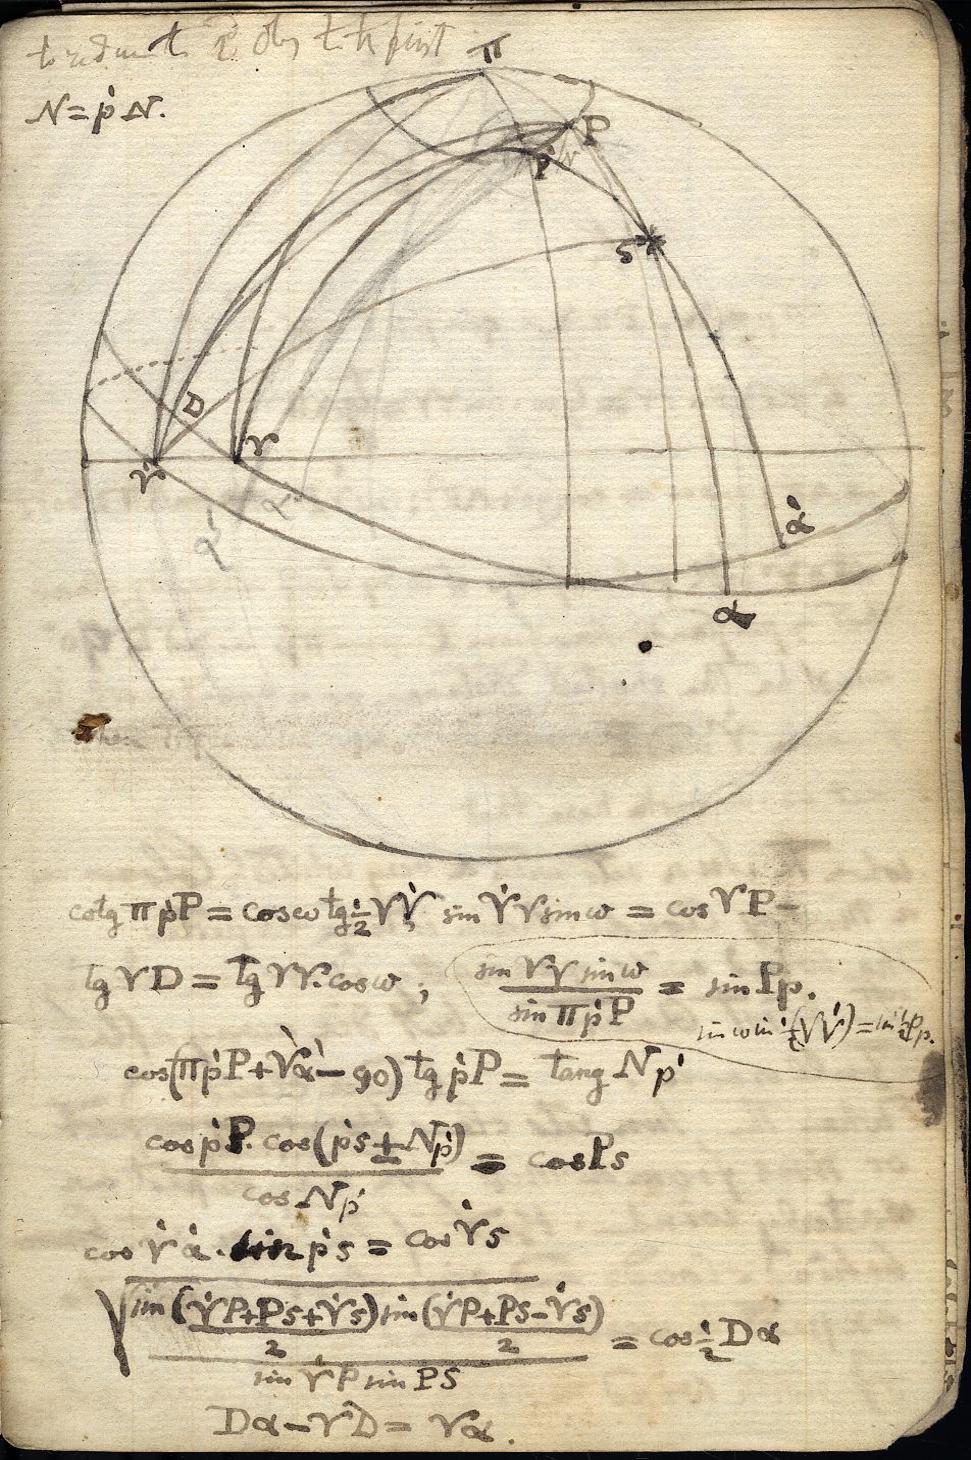 to reduce the 2d obs to the first
N = ṗN.
π
P
ṗ
N
S
D
♈̇
♈
α'
α
α̇
α
cotg πṗP = cosω tg½♈♈̇, sin ♈̇♈ sinω = cos ♈P -
tg ♈D = tg ♈♈̇. cosω ; sin ♈♈̇ sinω / sin πṗP = sin Pp.
sin ω sin ½(♈♈̇) = sin ½Pp.
cos(πṗP + ♈̇α̇ - 90) tg ṗP = tang Nṗ
cos ṗP. cos(ṗs ± Nṗ) / cos Nṗ = cos Ps
cos ♈̇α̇. sin ṗs = cos ♈̇s
√ sin (♈̇P+Ps+♈̇s / 2) sin (♈̇P+Ps-♈̇s / 2) / sin ♈̇P sin PS = cos ½ Dα
Dα - ♈D = ♈α.